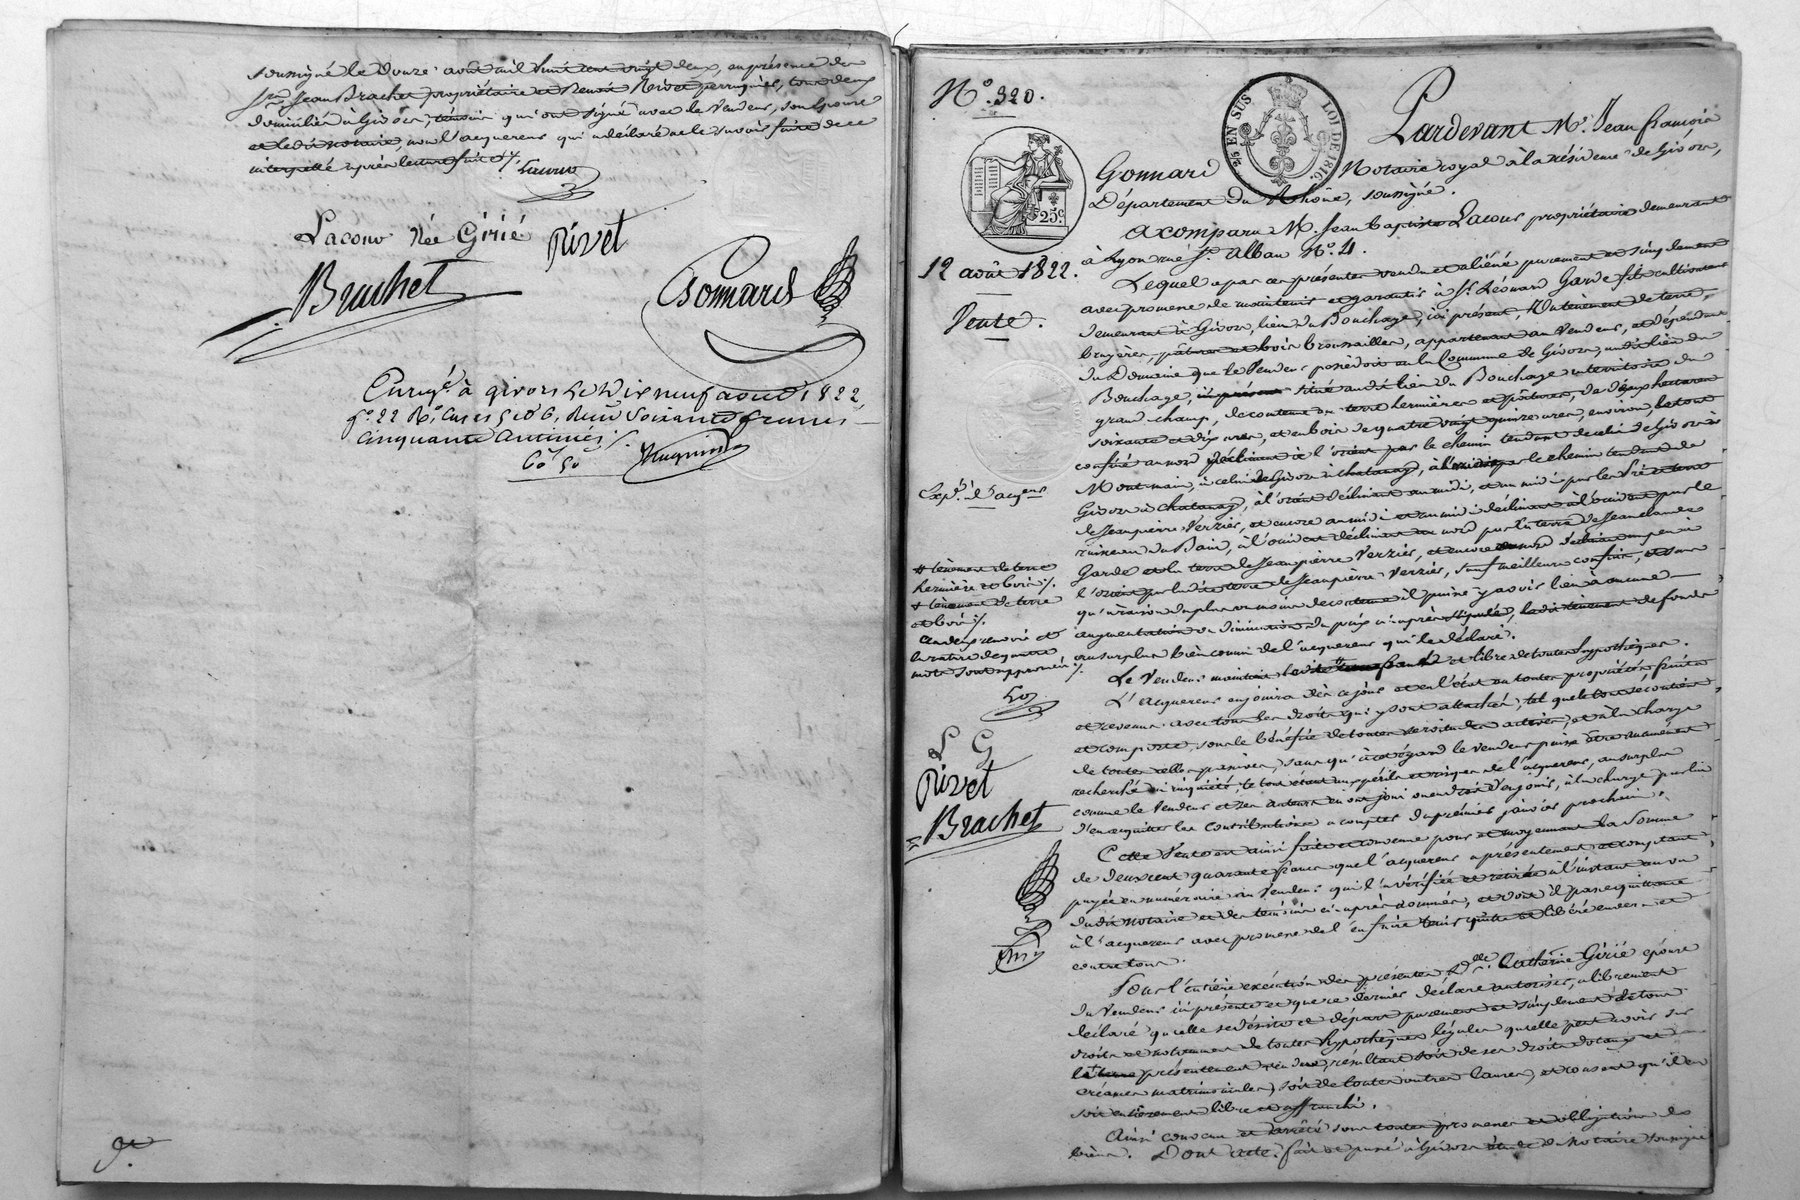 soussigné le douze août mil huit cent vingt deux, en présence de
Srs Jean Brachet propriétaire et Benoit Rivet perruquier, tous deux
domiciliés à Givors, témoins qui ont signé avec le Vendeur, son épouse
et le dit notaire, non l'acquéreur qui a déclaré ne le savoir faire de ce
interpellé après lecture faite %. Lacour
Lacour Née Girié Rivet
Brachet Gonnard
Enregé à givors le Dix neuf aout 1822
fo. 22 Ro. Cases 5 et 6, Reçu Soixante francs
cinquante centimes %.
60 50
No. 320.
2/5 EN SUS LOI DE 1816.
25c
12 août 1822.
Vente.
Expé. à l'acqeur
+ tènement de terre
hermière et bois %.
+ tènement de terre
et bois %.
Ces deux renvois et
la rature de quatre
mots sont approuvés %.
L G
Rivet
Brachet
Pardevant Me. Jean françois
Gonnard Notaire royal à la résidence de Givors,
Département du Rhône, soussigné.
A comparu M. Jean Baptiste Lacour propriétaire demeurant
à Lyon rue St. Alban No. 4.
Lequel a par ces présentes vendu et aliéné purement et simplement
avec promesse de maintenir et garantir à Sr. Léonard Garde fils cultivateur
demeurant à Givors, lieu du Bouchage, ici présent, Un tènement de terre,
bruyères, pâtures et bois broussailles, appartenant au Vendeur, et dépendant
du Domaine que le Vendeur possédoit en la Commune de Givors, audit lieu du
Bouchage, situé audit lieu du Bouchage et territoire du
grand champ, de contenue en terre hermières et pâtures, de deux hectares
soixante et dix ares, et en bois de quatre vingt quinze ares, environ, le tout
confiné au nord déclinant à l'orient par le chemin tendant de celui de Givors à
Montmain, à celui de Givors à chatanay, à par le chemin tendant de
Givors à chatanay, à l'orient déclinant au midi, et au midi par les Prés et terre
de Jean pierre Verzier, et encore au midi et au midi déclinant à l'occident par le
ruisseau du Bain, à l'occident déclinant au nord par la terre de Jean claude
Garde et la terre de Jean pierre Verzier, et encore au nord déclinant un peu à
l'orient par la dite terre de Jean pierre Verzier, sauf meilleurs confins, et sans
qu'à raison du plus ou moins de contenue il puisse y avoir lieu à aucune
augmentation ou diminution du prix ci-après stipulé, le dit tènement de fonds
au surplus bien connu de l'acquéreur qui le déclare.
Le Vendeur maintient franc et libre de toutes hypothèques.
L'acquéreur en jouira dès ce jour et en l'état en toutes propriétés fruits
et revenus avec tous les droits qui y sont attachés, tel que le tout se contient
et comporte, sous le bénéfice de toutes servitudes actives, et à la charge
de toutes celles passives, sans qu'à cet égard le vendeur puisse être aucunement
recherché ni inquiété, le tout étant aux périls et risques de l'acquéreur, au surplus
comme le Vendeur et ses auteurs en ont joui ou eu droit d'en jouir, à la charge par lui
d'en acquitter les contributions à compter du premier janvier prochain.
Cette Vente est ainsi faite et convenue pour et moyennant la Somme
de deux cent quarante francs que l'acquéreur a présentement et comptant
payée en numéraire au Vendeur qui l'a vérifiée et retirée à l'instant au vu
du dit notaire et des témoins ci-après nommés, et dont il passe quittance
à l'acquéreur avec promesse de l'en faire tenir quitte et libéré envers et
contre tous.
Pour l'entière exécution des présentes Delle. Catherine Girié épouse
du Vendeur ici présente et que ce dernier déclare autoriser, a librement
déclaré qu'elle se désiste et départ purement et simplement de tous
droits et notamment de toutes hypothèques légales qu'elle peut avoir sur
présentement vendu, résultant soit de ses droits dotaux et
créances matrimoniales, soit de toutes autres causes, et consent qu'il en
soit entièrement libre et affranchi.
Ainsi convenu et arrêté sous toutes promesses et obligations de
biens. Dont acte. fait et passé à Givors étude du Notaire soussigné